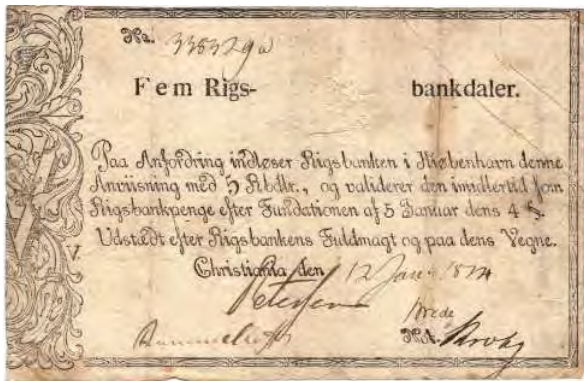 No. 333329a
Fem Rigs- bankdaler.
Paa Anfordring indløser Rigsbanken i Kiøbenhavn denne
Anviisning med 5 Rbdlr., og validerer den imidlertid som
Rigsbankpenge efter Fundationen af 5 Januar dens 4 §.
Udstædt efter Rigsbankens Fuldmagt og paa dens Vegne.
V.
Christiania den 12 Jan. 1814
Petersen
Wrede